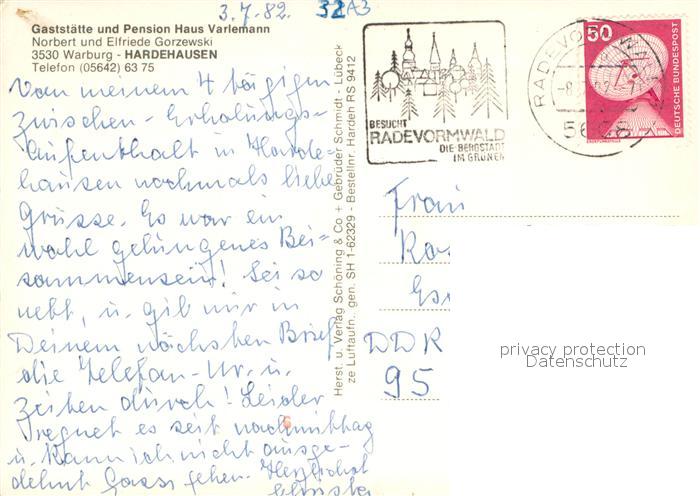 3.7.82.
32A3
Gaststätte und Pension Haus Varlemann
Norbert und Elfriede Gorzewski
3530 Warburg - HARDEHAUSEN
Telefon (05642) 63 75
Von meinem 4 tägigen
zwischen-Erholungs-
Aufenthalt in Harde-
hausen nochmals liebe
Grüsse. Es war ein
wohl gelungenes Bei-
sammensein! Sei so
nett, u. gib mir in
Deinem nächsten Brief
die Telefon-Nr. u.
Zeiten durch! Leider
regnet es seit nachmittag
u. kann ich nicht ausge-
dehnt Gassi gehen. Herzlichst
Herst. u. Verlag Schöning & Co + Gebrüder Schmidt - Lübeck
ze Luftaufn. gen. SH 1-62329 - Bestellnr. Hardeh RS 9412
BESUCHT
RADEVORMWALD
DIE BERGSTADT
IM GRÜNEN
RADEVO
-8.
50
DEUTSCHE BUNDESPOST
Frau
DDR
95
privacy protection
Datenschutz